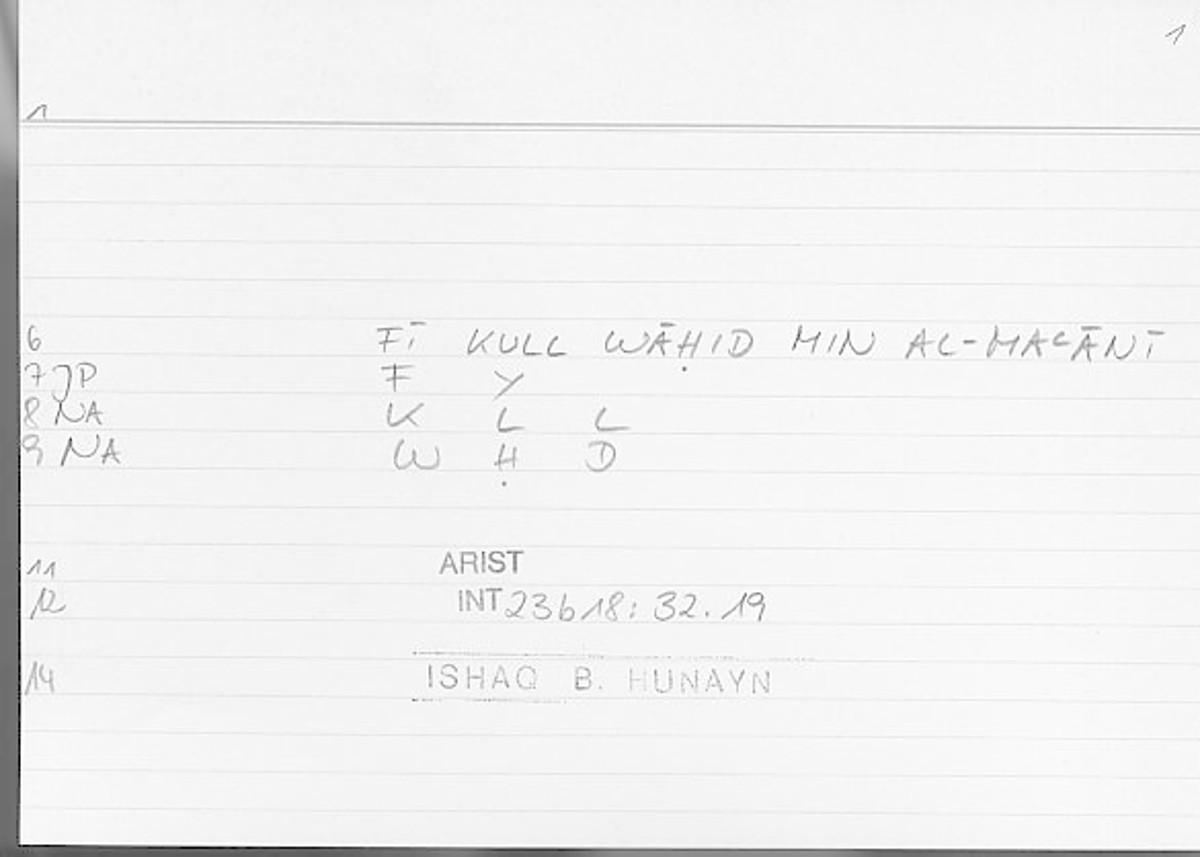 1
1
6 FĪ KULL WĀḤID MIN AL-MAʿĀNĪ
7 JP F Y
8 NA K L L
9 NA W Ḥ D
11 ARIST
12 INT 23b18: 32.19
14 ISHAQ B. HUNAYN